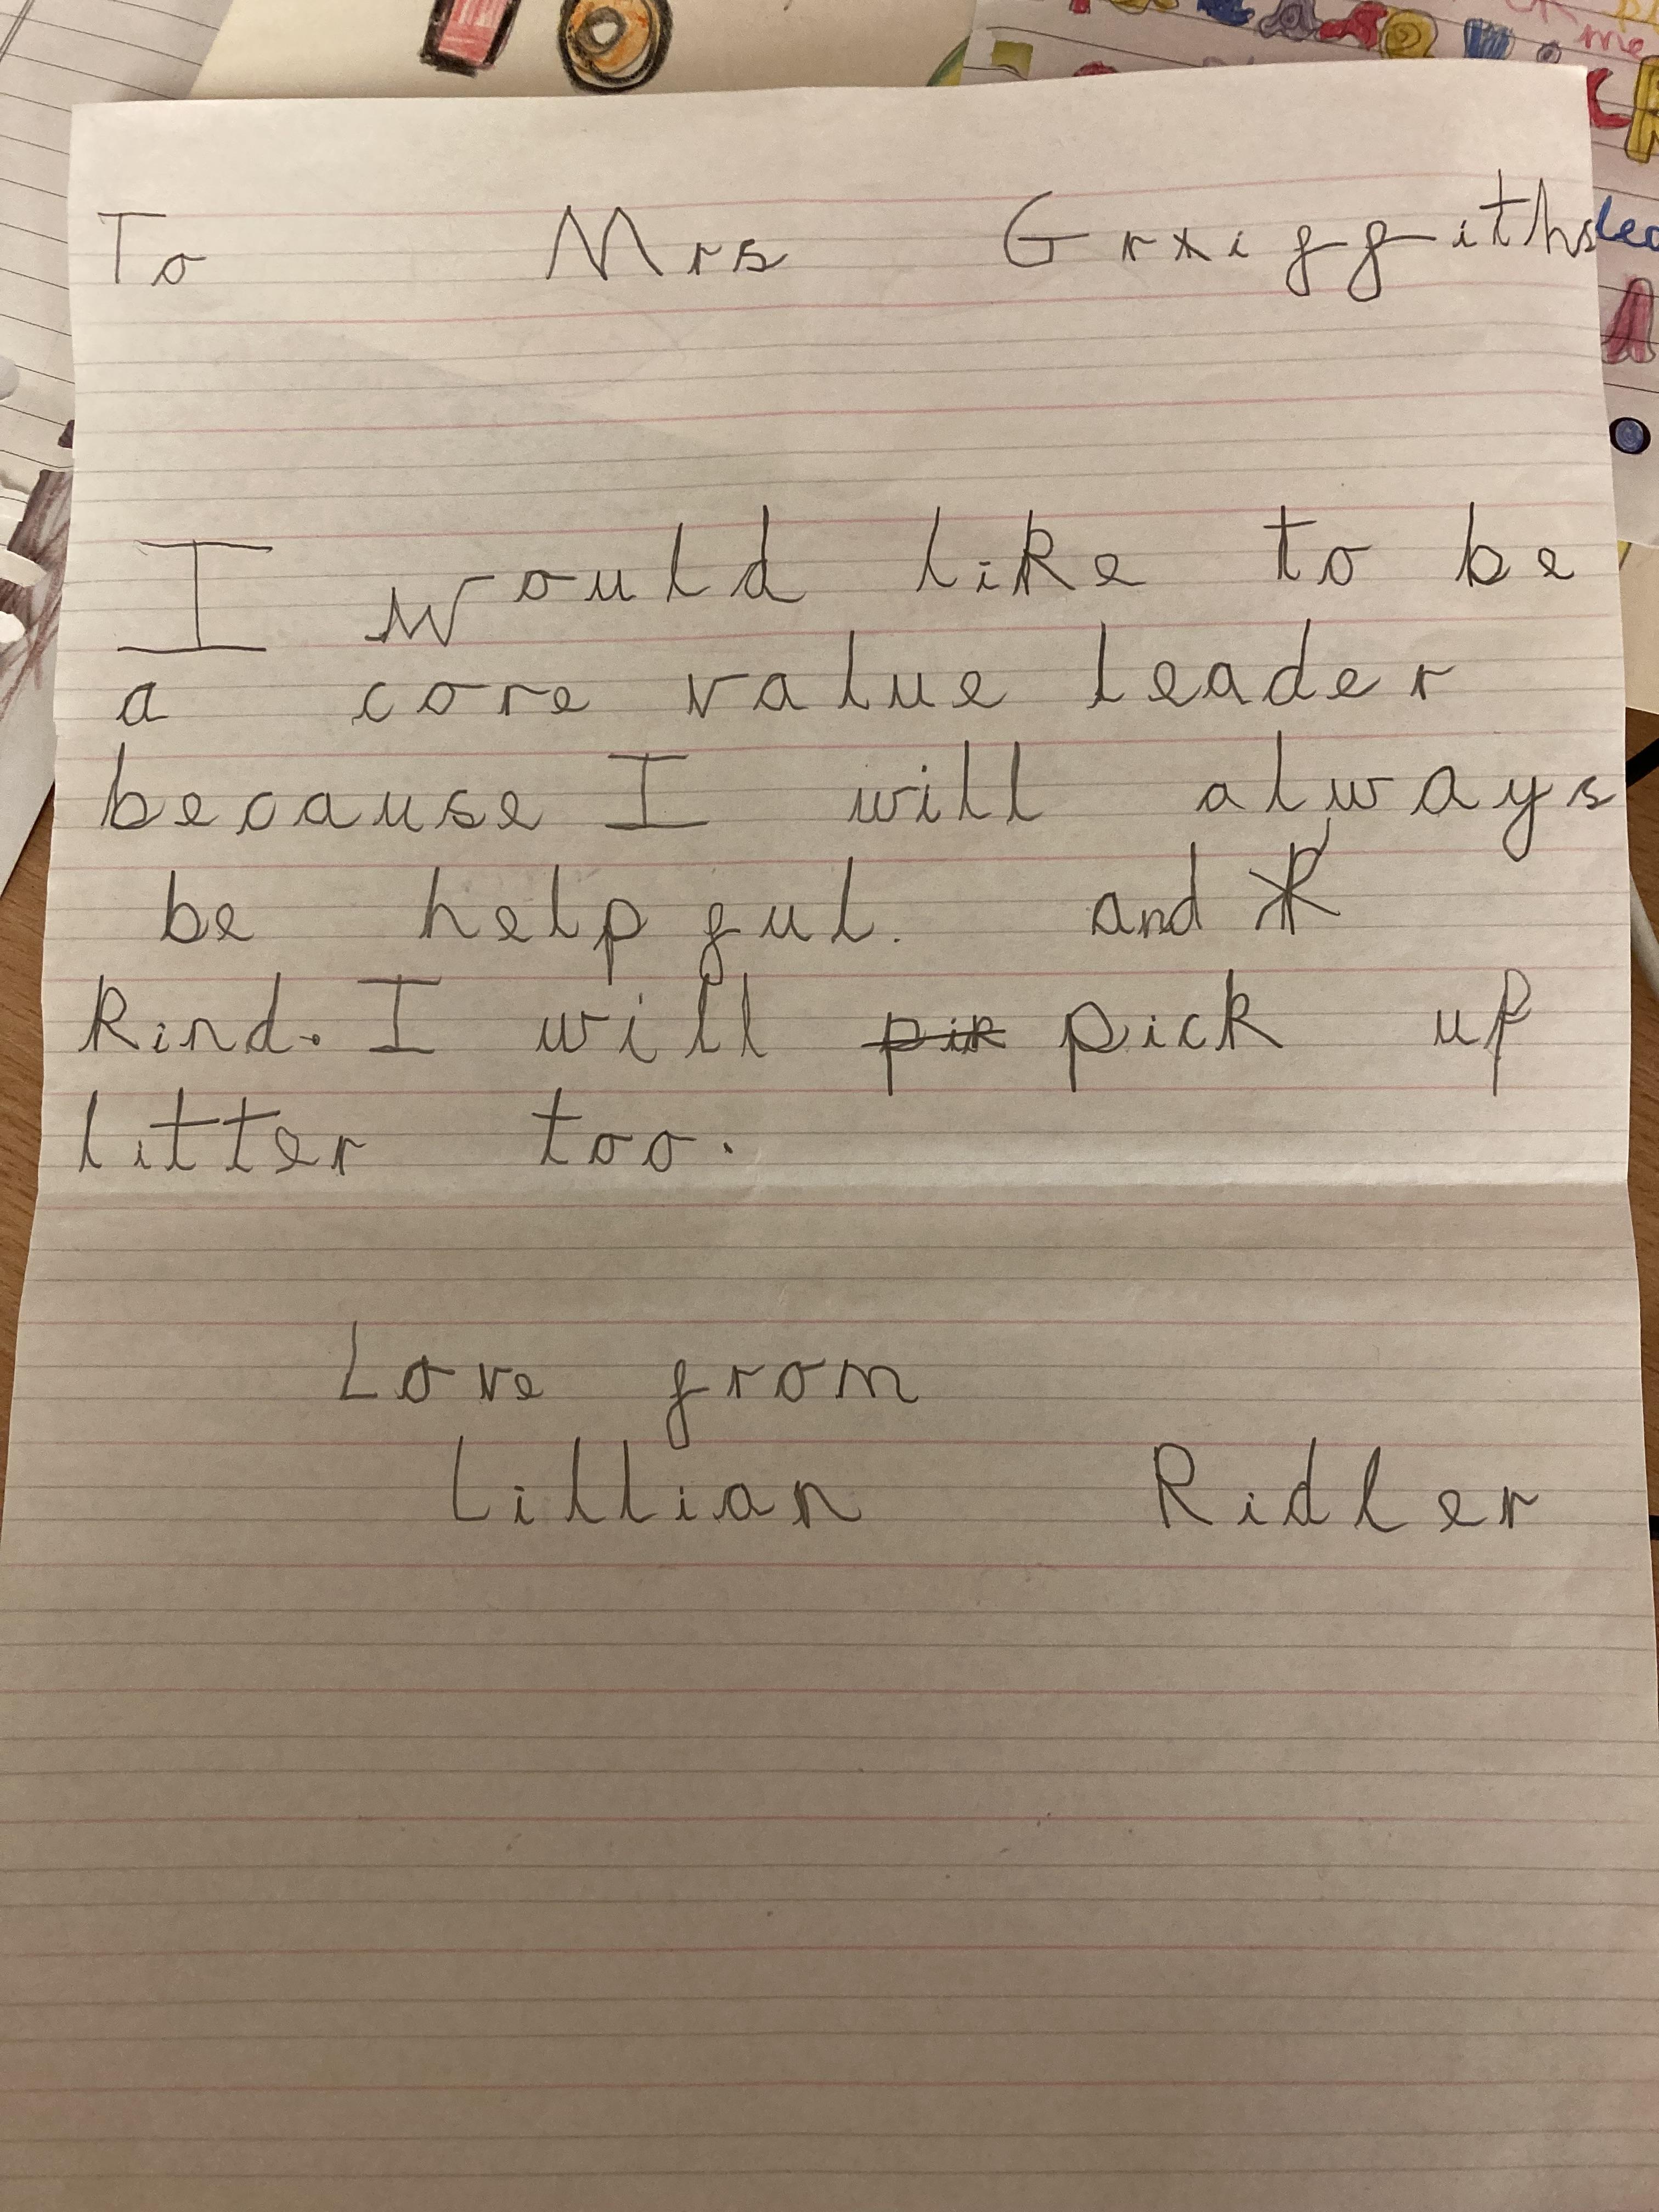 To Mrs Griffiths
I would like to be
a core value leader
because I will always
be helpful. and
kind. I will pick up
litter too.
Love from
Lillian Ridler